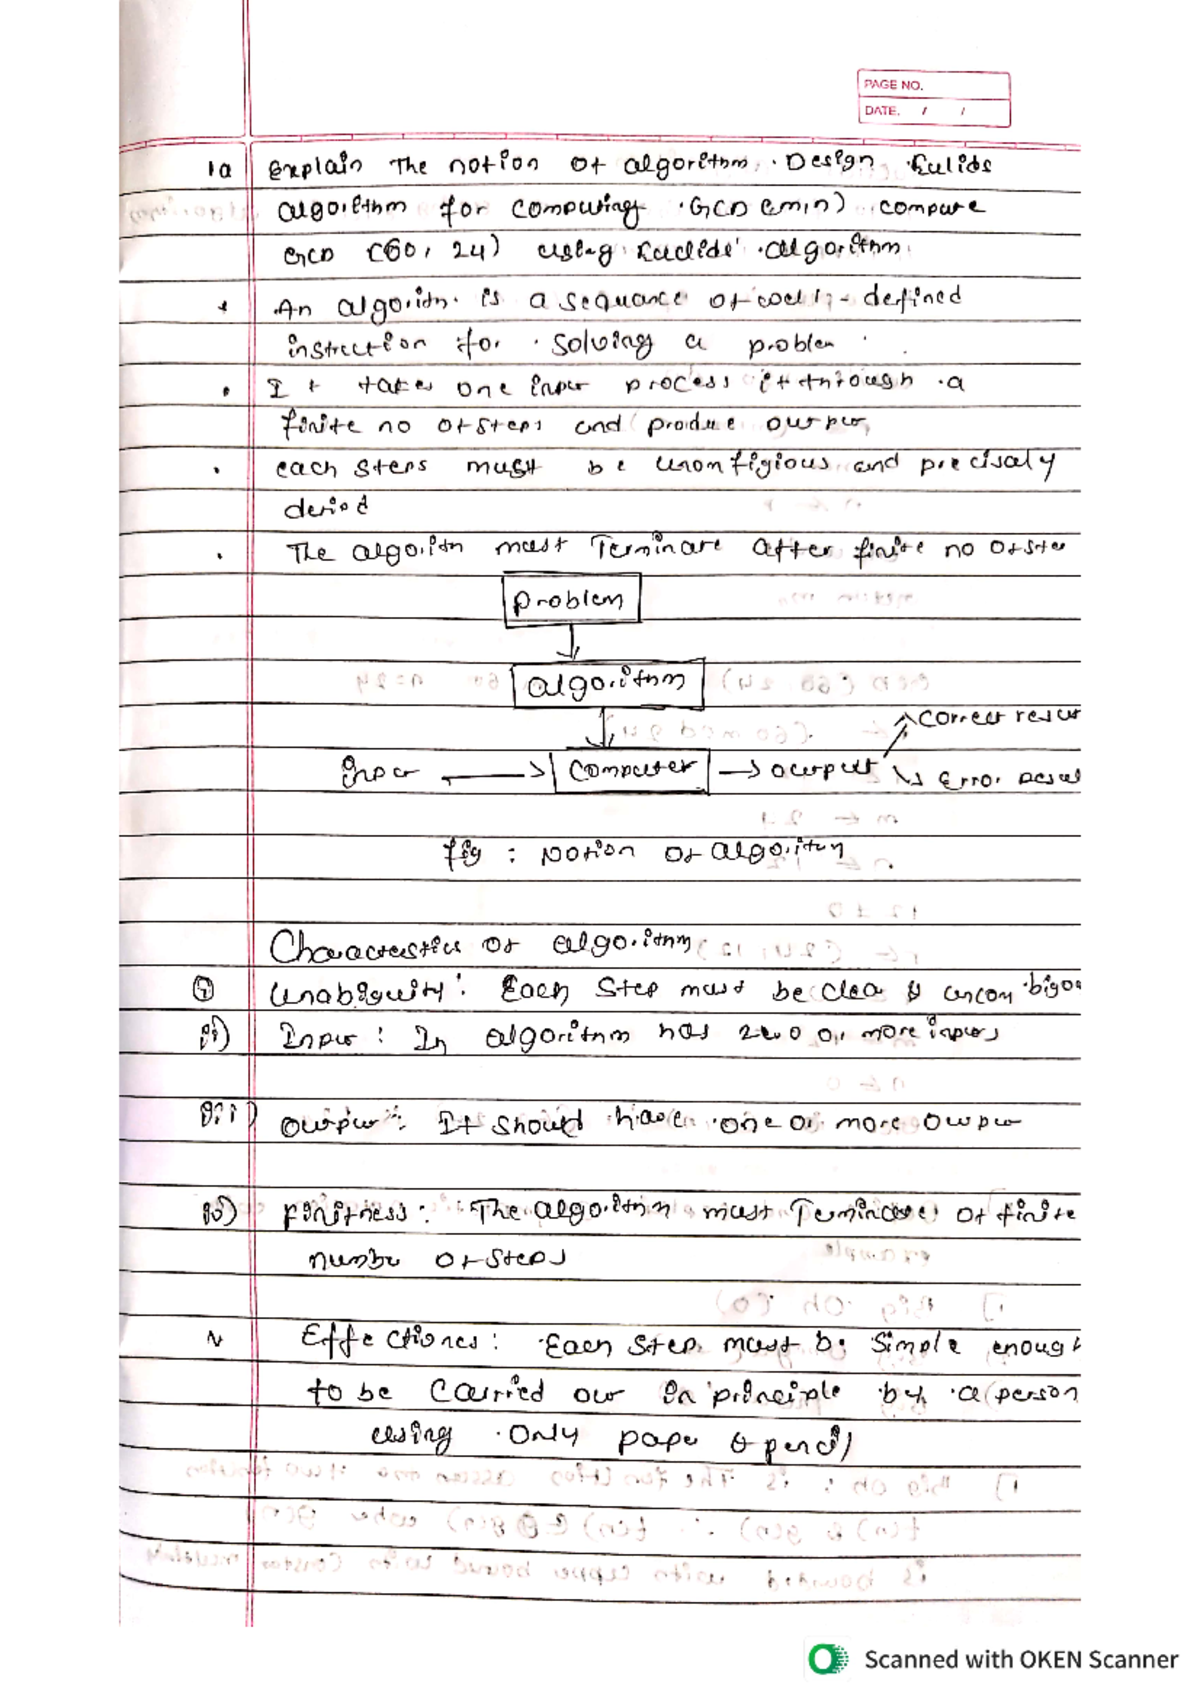 PAGE NO.
DATE. / /
1a Explain The notion of algorithm. Design Eulids
algorithm for computing GCD (m,n) compute
GCD (60, 24) using Euclids' algorithm.
An algorithm is a sequance of well - defined
instruction for solving a problem
It takes one input process it through a
finite no of steps and produce output
each steps must be and precisaly
The algorithm must Terminate after finite no of ste
problem
algorithm
correct resut
Input computer output
Error
fig : Notion of algorithm
Characterstics of algorithm
i unabiguity : Each step must be clea &
ii) Input : In algorithm has zero or more inputs
iii) output : It should have one or more output
iv) finitness : The algorithm must Terminate of finite
number of steps
v Effectiones : Each step must be simple enough
to be carried out in principle by a person
using only pape & pencil
Scanned with OKEN Scanner